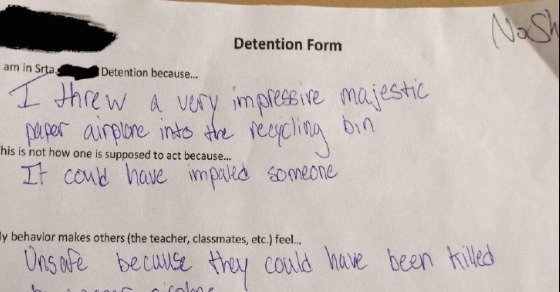 Detention Form
am in Srta. Detention because...
I threw a very impressive majestic
paper airplane into the recycling bin
his is not how one is supposed to act because...
It could have impaled someone
y behavior makes others (the teacher, classmates, etc.) feel...
Unsafe because they could have been killed